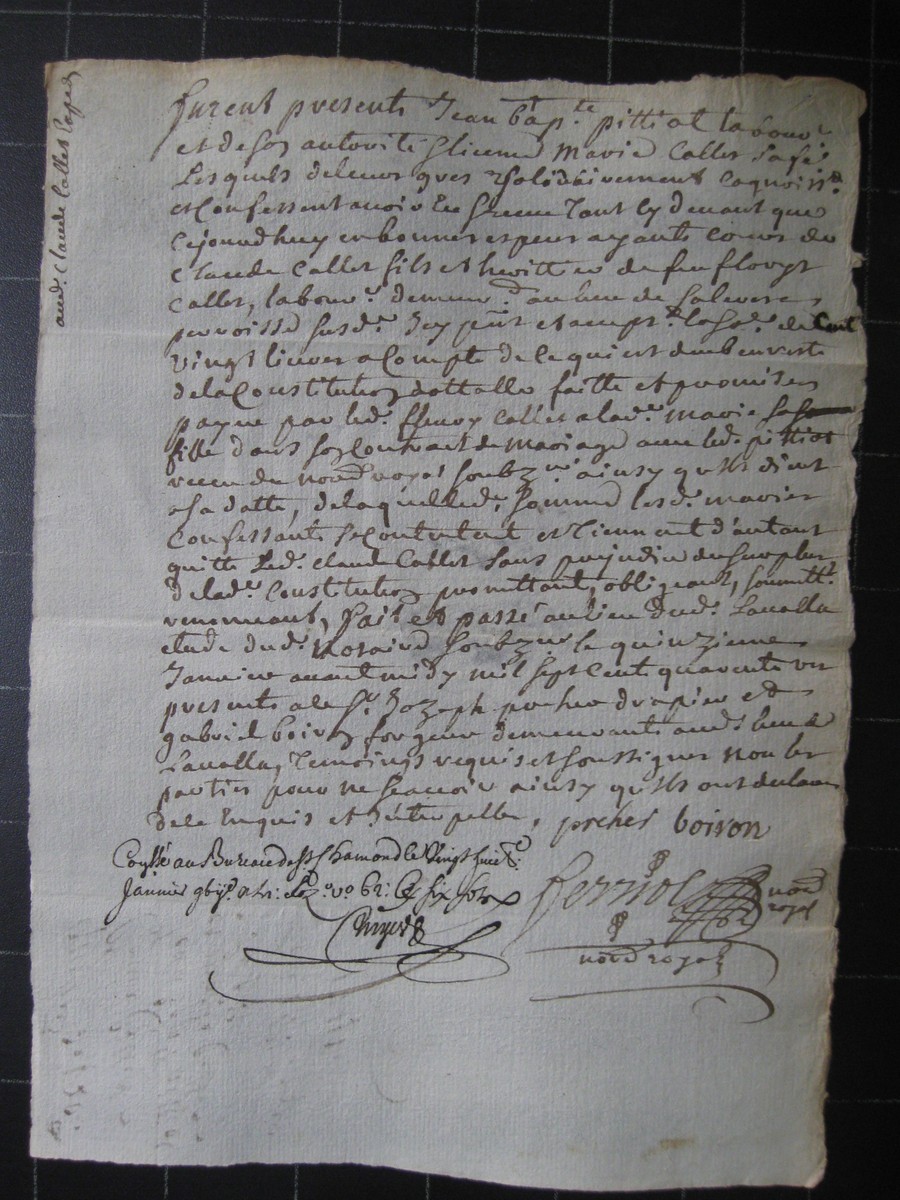 audt. Claude Callet Lapeö
furent presents Jean bapte. pittiot labour.
et de son autorité Marie Callet sa fe.
Lesquels de leurs gres solidairement cognoiss
et Confessent avoir Tant cy devant que
cejourdhuy en bonnes espesses ayants cours de
Claude Callet fils et heritier de feu fleury
Callet, labour. demeur. au lieu de
parroisse susd. icy pnt et accept. la so. de Cent
vingt livres a Compte de ce qui est deub en reste
de la Constitution dottalle faitte et promise
payer par led. fleury Callet a lad. Marie sa
fille dans son Contract de Mariage avec led. pittiot
receu du no.re royal soubz.ne ainsy quils dient
a sa datte, de laquelle somme lesd. mariez
Confessants se Contentent et Tiennent d'autant
quitte Led. Claude Callet sans prejudice du surplus
de lad. Constitution promettant, obligeant, soumett.
renonceant, fait et passé au lieu dud. Lavalla
etude dud. Notaire soubz.ne le quinzieme
Janvier avant midy mil sept cent quarente
presents a ce Sr. Jozeph precher drapier et
gabriel boiron forgeur demeurants aud. lieu de
Lavalla, Temoings requis et soussignez non les
parties pour ne scavoir ainsy quils ont declare
de ce Enquis et interpellés, precher boiron
Con.llé au Bureau de St Chamond le Vingt huit
Janvier six sols
Perriolat no.re royal
no.re royal